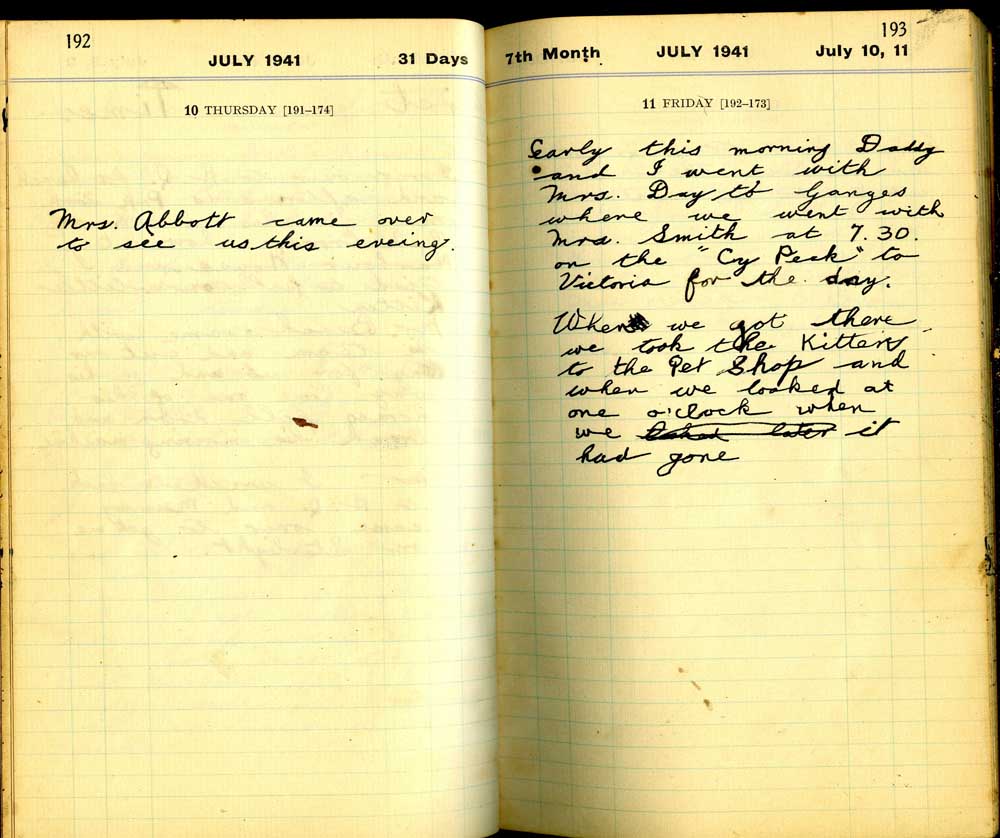 192
JULY 1941 31 Days
10 THURSDAY [191–174]
Mrs. Abbott came over
to see us this eveing.
193
7th Month JULY 1941 July 10, 11
11 FRIDAY [192–173]
Early this morning Daddy
and I went with
Mrs. Day to Ganges
where we went with
Mrs. Smith at 7.30.
on the "Cy Peck" to
Victoria for the day.
When we got there
we took the Kittens
to the Pet Shop and
when we looked at
one o'clock when
we later it
had gone